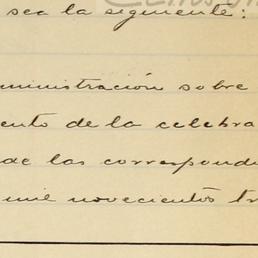 sea la siguiente:
ministración sobre
ento de la celebra
de las correspondi
mil novecientos tr